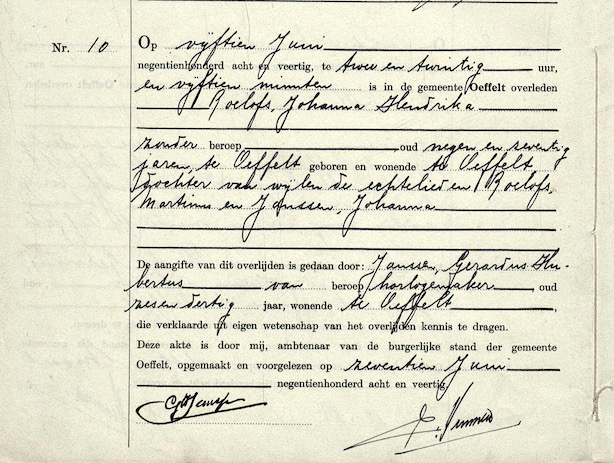 Nr. 10
Op vijftien Juni
negentienhonderd acht en veertig, te twee en twintig uur,
en vijftien minuten is in de gemeente Oeffelt overleden
Roelofs, Johanna Hendrika
zonder beroep oud negen en zeventig
jaren, te Oeffelt geboren en wonende te Oeffelt
dochter van wijlen de echtelieden Roelofs,
Martinus en Janssen, Johanna
De aangifte van dit overlijden is gedaan door: Janssen, Gerardus Hu-
bertus van beroep horlogemaker, oud
zes en dertig jaar, wonende te Oeffelt,
die verklaarde uit eigen wetenschap van het overlijden kennis te dragen.
Deze akte is door mij, ambtenaar van de burgerlijke stand der gemeente
Oeffelt, opgemaakt en voorgelezen op zeventien Juni
negentienhonderd acht en veertig.